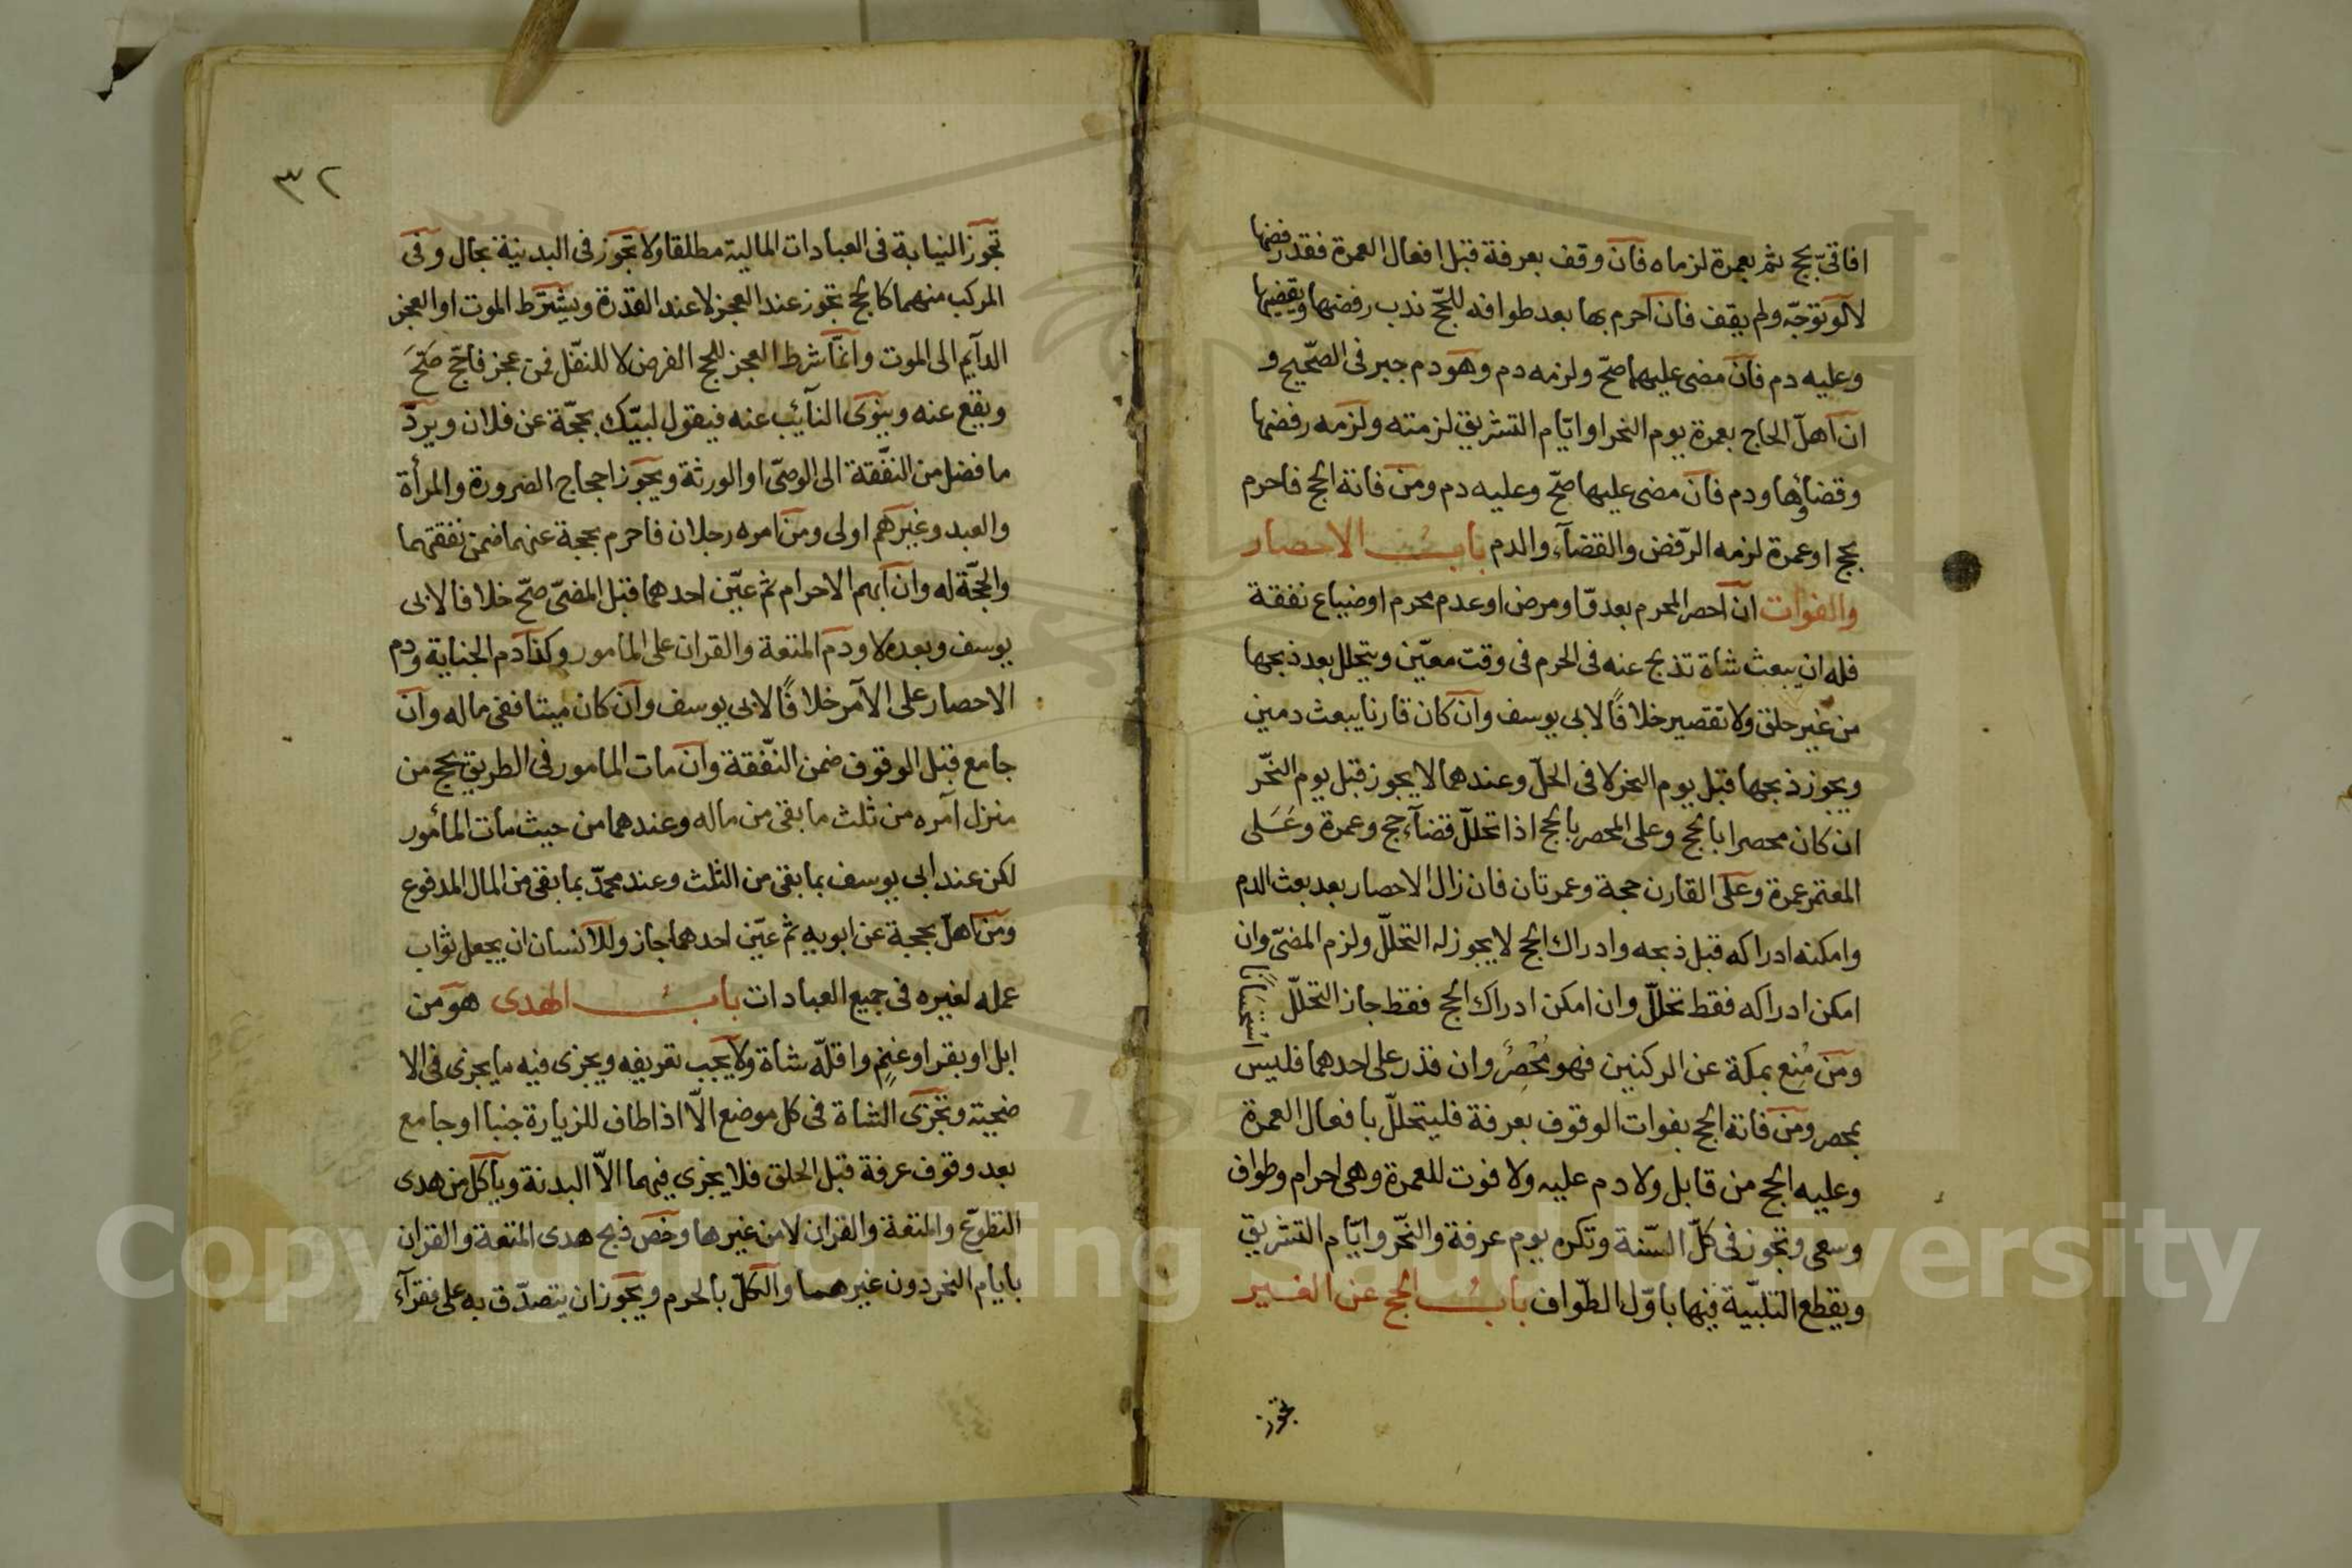 افاقىّ بحج ثم بعمرة لزماه فان وقف بعرفة قبل افعال العمرة فقد رفضها
لا لو توجّه ولم يقف فان احرم بها بعد طوافه للحجّ ندب رفضها ويقضيها
وعليه دم فان مضى عليهما صحّ ولزمه دم وهو دم جبر فى الصّحيح و
ان اهلّ الحاج بعمرة يوم النحر او ايّام التشريق لزمته ولزمه رفضها
وقضاؤها ودم فان مضى عليها صحّ وعليه دم ومن فاته الحج فاحرم
بحج او عمرة لزمه الرّفض والقضآء والدم باب الاحصار
والفوات ان احصر المحرم بعدوّ او مرض او عدم محرم او ضياع نفقة
فله ان يبعث شاة تذبح عنه فى الحرم فى وقت معيّن ويتحلل بعد ذبحها
من غير حلق ولا تقصير خلافًا لابى يوسف وان كان قارنا يبعث دمين
ويجوز ذبحها قبل يوم النحر لا فى الحلّ وعندهما لا يجوز قبل يوم النحّر
ان كان محصرا بالحج وعلى المحصر بالحج اذا تحللّ قضآء حج وعمرة وعَلى
المعتمر عمرة وعلى القارن حجة وعمرتان فان زال الاحصار بعد بعث الدم
وامكنه ادراكه قبل ذبحه وادراك الحج لا يجوز له التحللّ ولزم المضىّ وان
امكن ادراكه فقط تحللّ وان امكن ادراك الحج فقط جاز التحللّ استحسَانًا
ومن مُنِع بمكة عن الركنين فهو مُحْصَرٌ وان قدر على احدهما فليس
بمحصر ومن فاته الحج بفوات الوقوف بعرفة فليتحللّ بافعال العمرة
وعليه الحج من قابل ولا دم عليه ولا فوت للعمرة وهى احرام وطواف
وسعى وتجوز فى كلّ السّنة وتكره يوم عرفة والنحّر وايّام التشريق
ويقطع التلبّية فيها باوّل الطّواف باب الحج عن الغير
تجوز
٣٢
تجوز النيابة فى العبادات الماليّة مطلقا ولا تجوز فى البدنيّة بحال وفى
المركب منهما كالحج تجوز عند العجز لا عند القدرة ويشترط الموت او العجز
الدآيم الى الموت وانمّا شرط العجز للحج الفرض لا للنفّل فمن عجز فاحجّ صَحَّ
ويقع عنه وينوى النآئب عنه فيقول لبيّك بحجّة عن فلان ويردّ
ما فضل من النفّقة الى الوصىّ او الورثة ويجوز احجاج الصرورة والمرأة
والعبد وغيرهم اولى ومن امره رجلان فاحرم بحجة عنهما ضمن نفقتهما
والحجّة له وان ابهم الاحرام ثم عيّن احدهما قبل المضىّ صحّ خلافا لابى
يوسف وبعده لا ودم المتعة والقران على المامور وكذا دم الجناية ودم
الاحصار على الآمر خلافًا لابى يوسف وان كان ميتا ففى ماله وان
جامع قبل الوقوف ضمن النفّقة وان مات المامور فى الطريق يحج من
منزل آمره من ثلث ما بقى من ماله وعندهما من حيث مات المأمور
لكن عند ابى يوسف بما بقى من الثلث وعند محمدّ بما بقى من المال المدفوع
ومن اهلّ بحجة عن ابويه ثم عيّن احدهما جاز وللانسان ان يجعل ثواب
عمله لغيره فى جميع العبادات باب الهدى هو من
ابل او بقر او غنمٍ واقلّه شاة ولا يجب تعريفه ويجزى فيه ما يجزى فى الا
ضحية وتجزى الشاة فى كل موضع الّا اذا طاف للزيارة جنبا او جامع
بعد وقوف عرفة قبل الحلق فلا يجزى فيهما الاّ البدنة ويأكل من هدى
التطوّع والمتعة والقران لا من غيرها وخص ذبح هدى المتعة والقران
بايام النحر دون غيرهما والكلّ بالحرم ويجوز ان يتصدّق به على فقرآء
Copyright © King Saud University